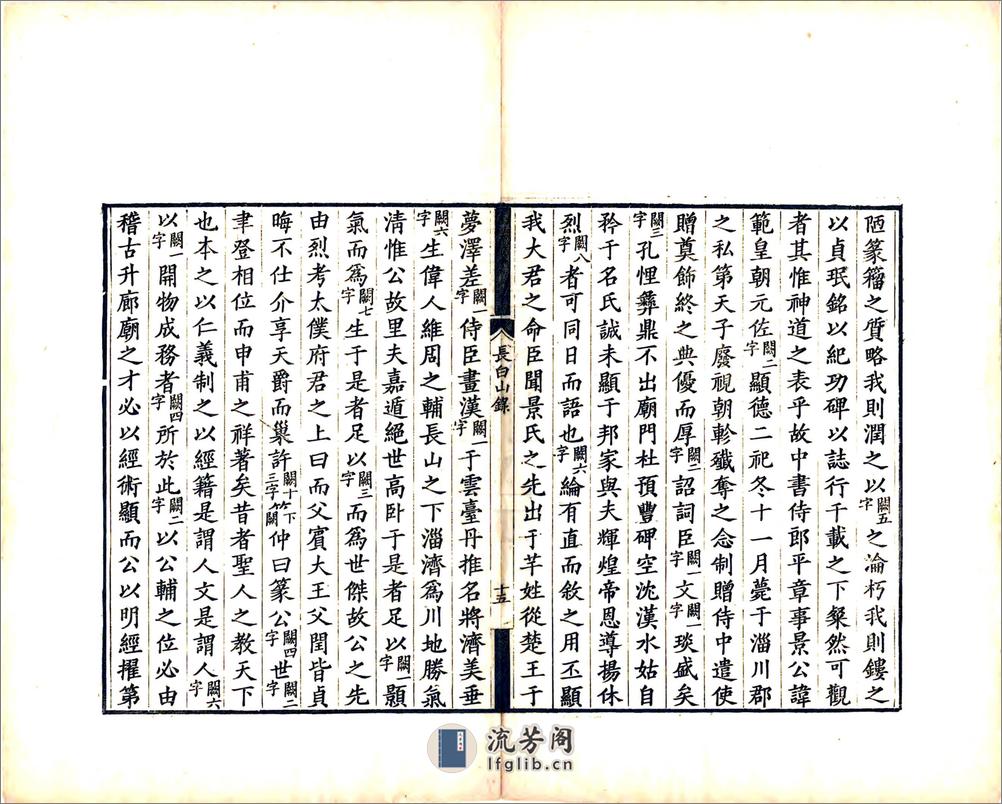 陋篆籀之質略我則潤之以闕五字之淪朽我則鏤之
以貞珉銘以紀功碑以誌行千載之下粲然可觀
者其惟神道之表乎故中書侍郎平章事景公諱
範皇朝元佐闕二字顯德二祀冬十一月薨于淄川郡
之私第天子廢視朝軫殲奪之念制贈侍中遣使
贈奠飾終之典優而厚闕二字詔詞臣闕一字文闕一字琰盛矣
闕三字孔悝彝鼎不出廟門杜預豐碑空沈漢水姑自
矜于名氏誠未顯于邦家與夫輝煌帝恩導揚休
烈闕八字者可同日而語也闕六字綸有直而敘之用丕顯
我大君之命臣聞景氏之先出于芊姓從楚王于
長白山錄
十五
夢澤差闕一字侍臣畫漢闕一字于雲臺丹推名將濟美垂
闕六字生偉人維周之輔長山之下淄濟爲川地勝氣
淸惟公故里夫嘉遁絕世高卧于是者足以闕一字顥
氣而爲闕七字生于是者足以闕三字而爲世傑故公之先
由烈考太僕府君之上曰而父賓大王父閏皆貞
晦不仕介享天爵而巢許闕十三字下闕仲曰篆公闕四字世闕二字
聿登相位而申甫之祥著矣昔者聖人之教天下
也本之以仁義制之以經籍是謂人文是謂人闕六字
以闕一字開物成務者闕四字所於此闕二字以公輔之位必由
稽古升廊廟之才必以經術顯而公以明經擢第
流芳阁
lfglib.cn